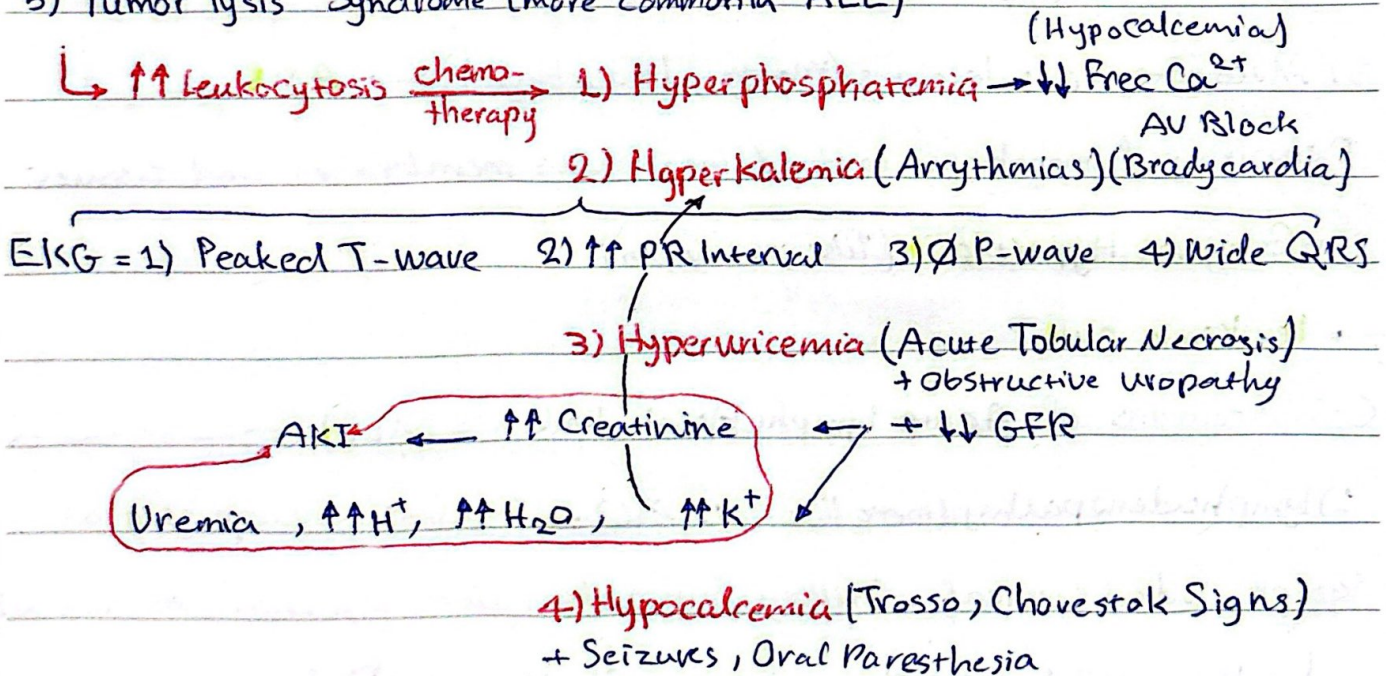 5) Tumor lysis Syndrome (more common in ALL)
(Hypocalcemia)
↳ ↑↑ Leukocytosis chemo-therapy → 1) Hyperphosphatemia → ↓↓ Free Ca²⁺
AV Block
2) Hyperkalemia (Arrythmias) (Bradycardia)
EKG = 1) Peaked T-wave 2) ↑↑ PR Interval 3) Ø P-wave 4) Wide QRS
3) Hyperuricemia (Acute Tobular Necrosis)
+ Obstructive uropathy
AKI ← ↑↑ Creatinine ← + ↓↓ GFR
Uremia , ↑↑ H⁺, ↑↑ H₂O, ↑↑ K⁺
4) Hypocalcemia (Trosso, Chovestak Signs)
+ Seizures, Oral Paresthesia